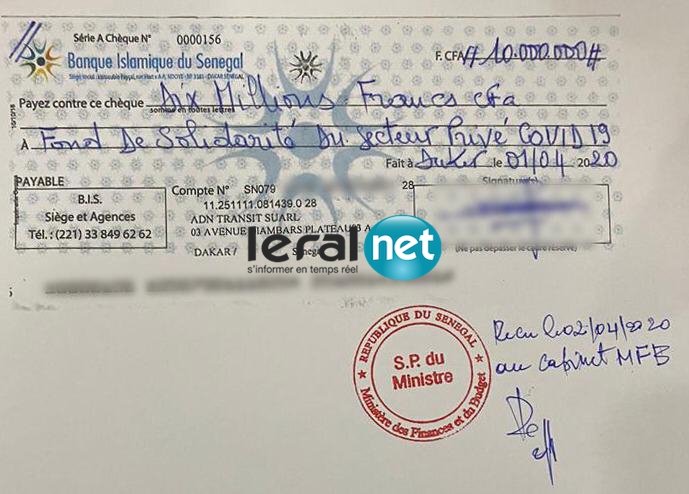 Série A Chèque N° 0000156
Banque Islamique du Senegal
F. CFA # 10.000.000 #
Payez contre ce chèque Dix Millions Francs cfa
somme en toutes lettres
A Fond De Solidarité Du Secteur Privé COVID 19
Fait à Dakar le 01/04 2020
PAYABLE
B.I.S.
Siège et Agences
Tél. : (221) 33 849 62 62
Compte N° SN079
28
Signature(s)
11.251111.081439.0 28
ADN TRANSIT SUARL
03 AVENUE DIAMBARS PLATEAU
DAKAR /
(Ne pas dépasser le cadre réservé)
leral net
s'informer en temps réel
REPUBLIQUE DU SENEGAL
S.P. du
Ministre
Ministère des Finances et du Budget
Recu le 02/04/2020
au cabinet MFB